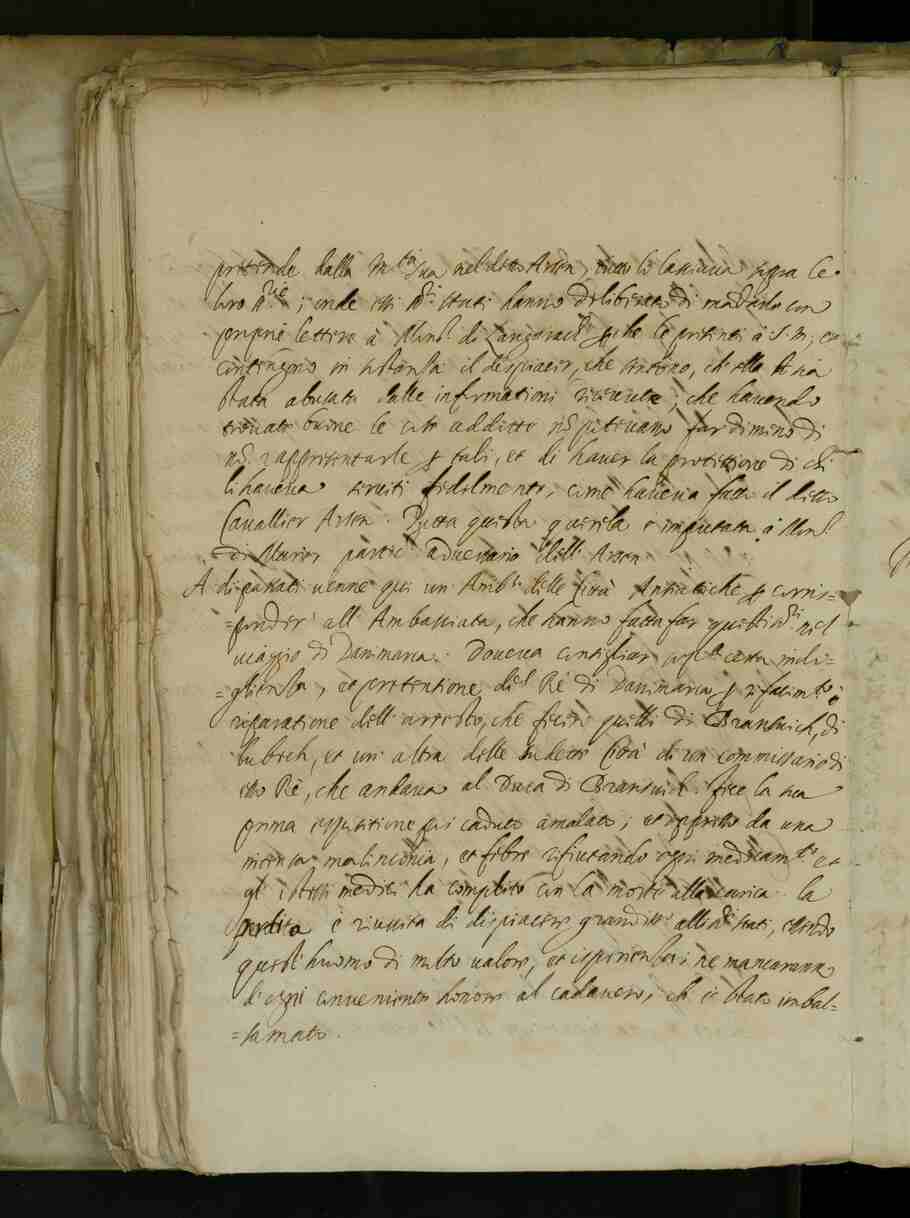 pretende dalla M.tà sua nel detto Arsen, tutto lo lasciava sopra le
loro ; onde essi stati hanno deliberato di mandarlo con
proprie lettere à Mons.r di p che le presenti à S. M; et
contengono in sostanza il dispiacer, che sentono, ch'ella sia
stata abusata dalle informationi ricevute; che havendo
trovato buone le cose addotte nõ potevano far dimeno di
nõ rappresentarle p tali, et di haver la protettione di chi
li haveva serviti fidelmente, come haveva fatto il detto
Cavallier Arsen. Tutta questa querela è imputata à Mons.r
di Murier avversario dell' Arsen.
A di passati venne qui un Amb.r delle Città Ansiatiche p corris=
=ponder all' Ambasciata, che hanno fatta far questi nel
viaggio di Danimarca. Doveva consigliar certa intelli=
=gienza, et pretentione del Rè di Danimarca p rifacim.to, ò
riparatione dell' arresto, che fecero quelli di Bransuich, di
Lubech, et un' altra delle sudette Città di un commissario di
esso Rè, che andava al Duca di Bransuich. fece la sua
prima espositione poi caduto amalato; et oppresso da una
intensa malinconia, et febre rifiutando ogni medicam.to et
gl' istessi medici ha complito con la morte alla carica. la
perdita è riuscita di dispiacere grandiss.o alli stati, essendo
quest' huomo di molto valore, et esperienza; ne mancarono
d' ogni conveniente honore al cadavero, ch' è stato imbal=
=samato.